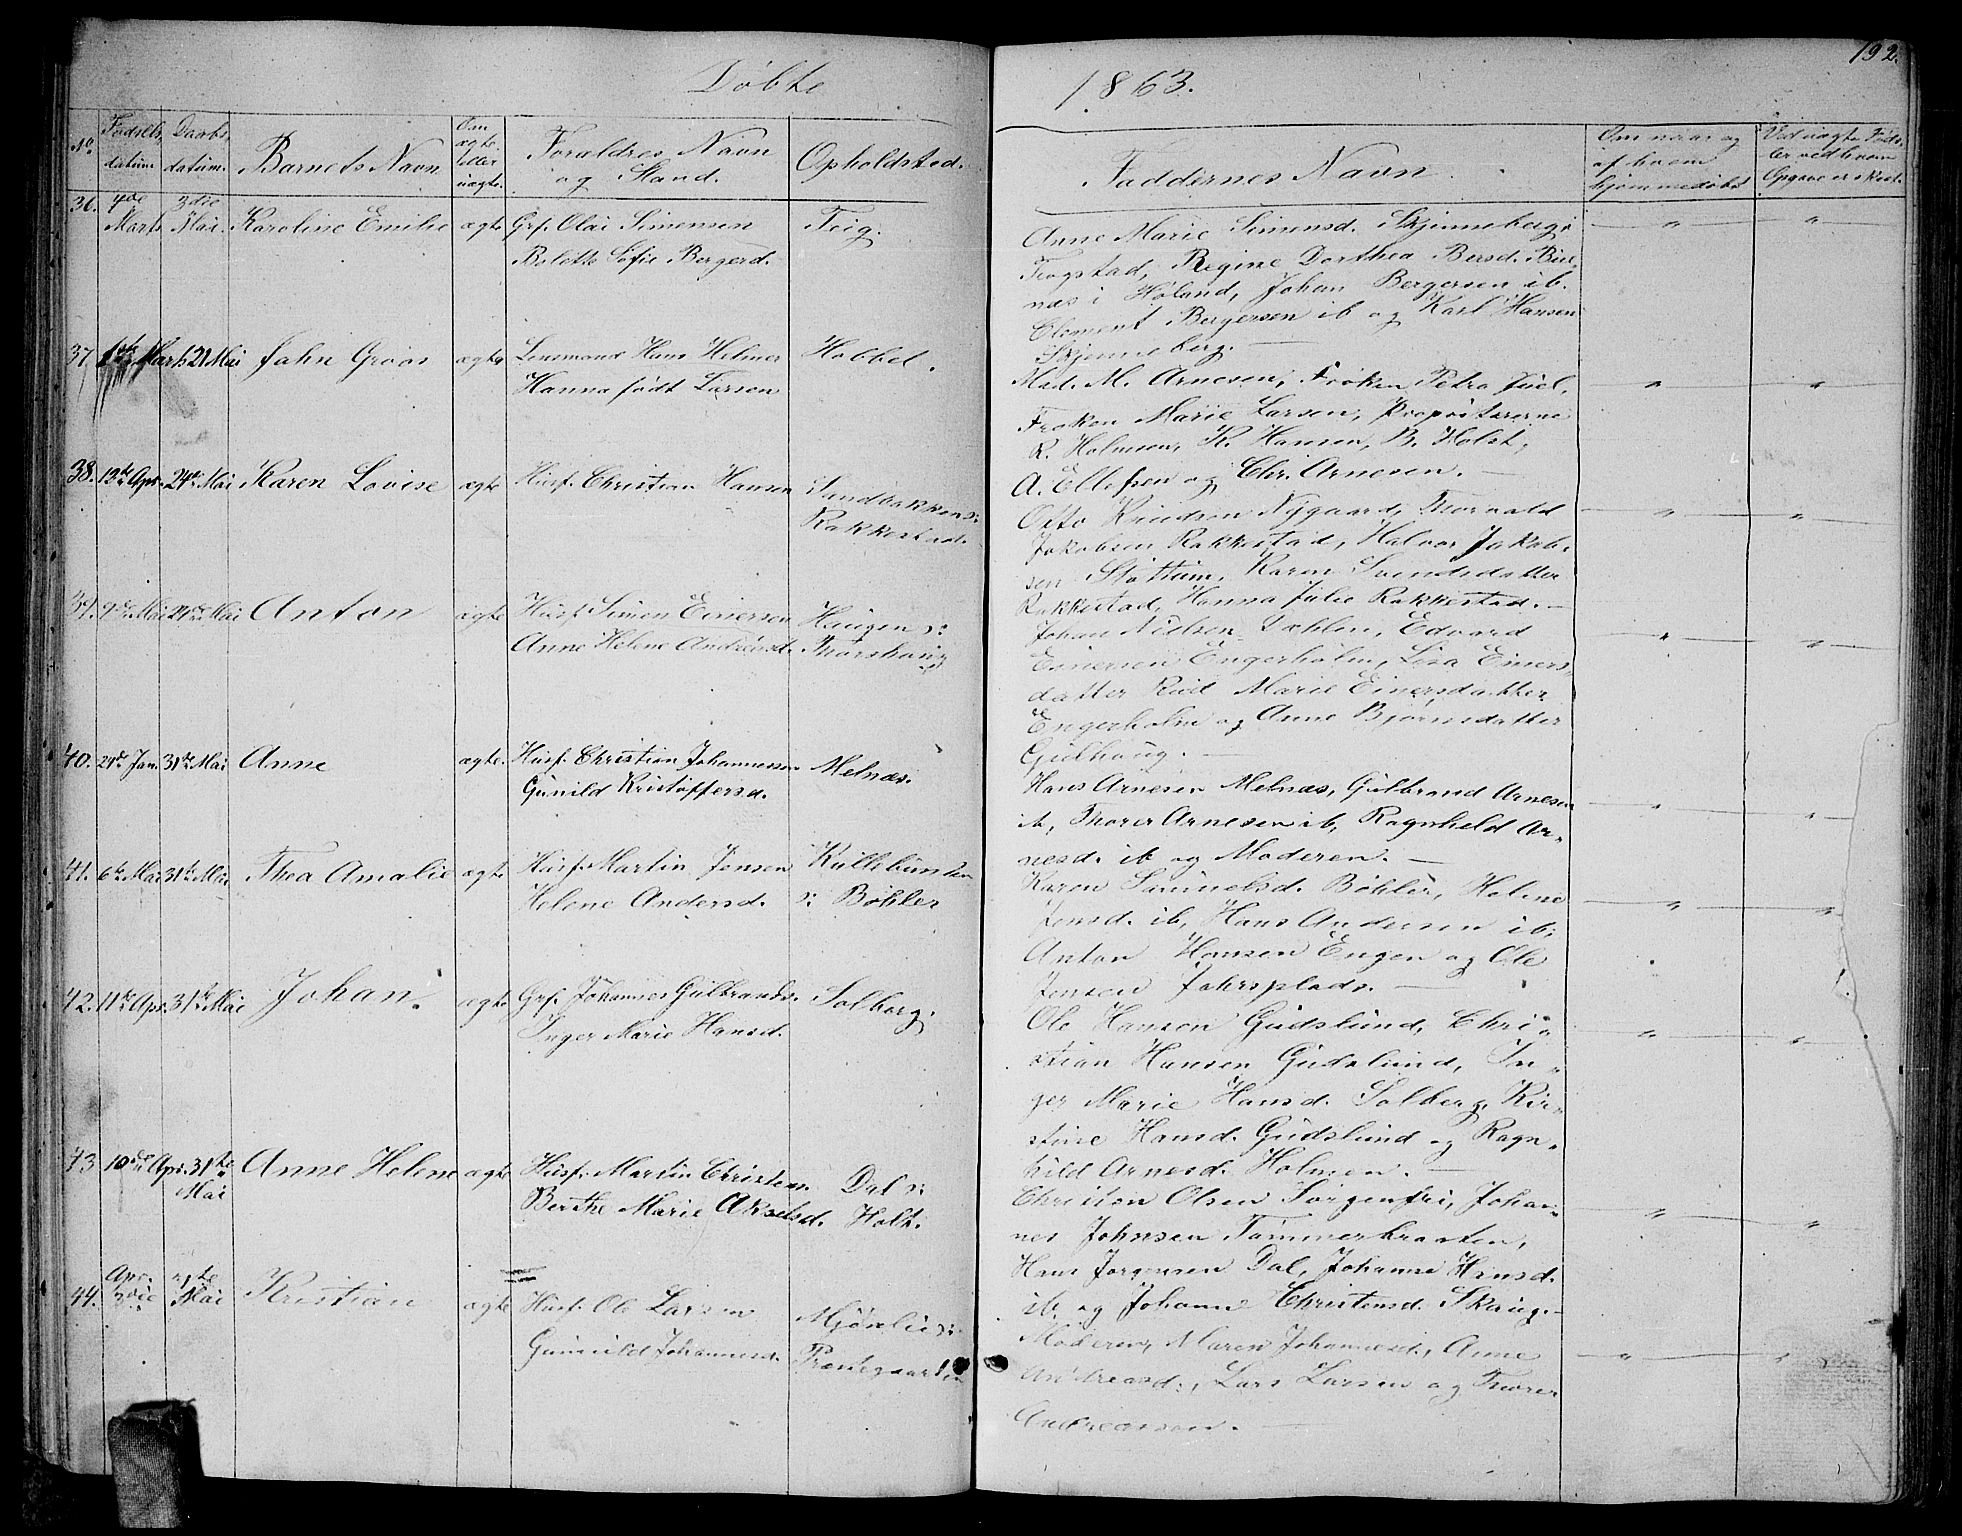 Døbte
1863.
192.
No.
Fødsels datum.
Daabs datum.
Barnets Navn
Om ægte eller uægte.
Forældres Navn og Stand.
Opholdsted.
Faddernes Navn.
Om naar og af hvem hjemmedøbt
Ved uægte Føds. ler ved hvem Opgave er skeet.
36. 4de Marts 3die Mai. Karoline Emilie ægte Grf. Olai Simensen Teig.
Bolette Sofie Bergersd.
Anne Marie Simensd. Skjenneberg i
Trøgstad, Regine Dorthea Bersd.
næs i Høland, Johan Bergersen ib.
Clement Bergersen ib og Karl Hansen
Skjenneberg.
37. Marts 21 Mai Jahn Groos ægte Lensmand Hans Helmer Hobbel.
Hanna født Larsen
Mad. M. Arnesen, Frøken Petra Juel,
Frøken Marie Larsen, Proprietærerne
R. Holmsen, K. Hansen, B. Holst,
A. Ellefsen og Chr. Arnesen.
38. 13de Apr. 24de Mai Karen Lovise ægte Husf. Christian Hansen Sandbakken s:
Rakkestad.
Otto Knudsen Nygaard, Thorvald
Jakobsen Rakkestad, Halvor Jakob-
sen Støttum, Karen Svendsdatter
Rakkestad, Hanna Julie Rakkestad.
39. 9de Mai 24de Mai Anton ægte Husf. Simen Einersen Haugen s:
Anne Helene Andreasd. Thorshaug
Johan Nielsen Dæhlen, Edvard
Einersen Engerholm, Lisa Einers-
datter Rud Marie Einersdatter
Engerholm og Anne Bjørnsdatter
Gulhaug.
40. 29de Jan. 31te Mai Anne ægte. Husf. Christian Johannessen Melnæs.
Gunild Kristoffersd.
Hans Arnesen Melnæs, Gulbrand Arnesen
ib, Thorer Arnesen ib, Ragnhild Ar-
nesd. ib og Moderen.
41. 6te Mai 31te Mai Thea Amalie ægte Husf. Martin Jensen Kullebunden
Helene Andersd. s: Bøhler
Karen Samuelsd. Bøhler, Helene
Jensd. ib, Hans Andersen ib,
Anton Hansen Engen og Ole
Jensen Jahrsplads.
42. 11te Apr. 31te Mai Johan. ægte Grf. Johannes Gulbrands. Solberg.
Inger Marie Hansd.
Ole Hansen Gudslund, Chri-
stian Hansen Gudslund, In-
ger Marie Hansd. Solberg, Kir-
stine Hansd. Gudslund og Ragn-
hild Arnesd. Holmsen.
43 10de Apr. 31te Mai Anne Helene ægte Husf. Martin Christens. Dal s:
Berthe Marie Akselsd. Holt.
Christen Olsen Sorgenfri, Johan-
nes Johnsen Tømmerbraaten,
Hans Jørgensen Dal, Johanne Hansd.
ib og Johanne Christensd. Skaug.
44. Apr. 3die Mai Kristian ægte Husf. Ole Larsen Mjøslie s:
Gunnild Johannesd. Præstegaarden
Moderen, Maren Johannesd., Anne
Andreasd., Lars Larsen og Thorer
Andreassen.